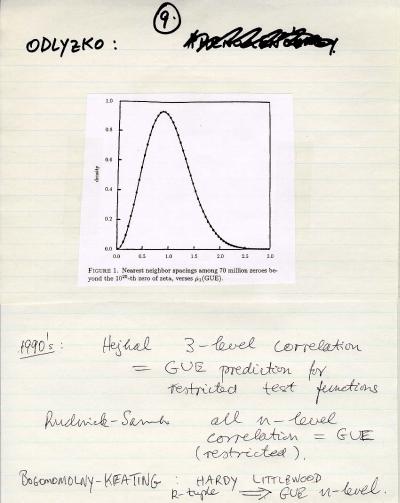 9.
ODLYZKO :
density
1.0
0.8
0.6
0.4
0.2
0.0
0.0 0.5 1.0 1.5 2.0 2.5 3.0
FIGURE 1. Nearest neighbor spacings among 70 million zeroes be-
yond the 10²⁰-th zero of zeta, verses μ₁(GUE).
1990's : Hejhal 3-level correlation
= GUE prediction for
restricted test functions
Rudnick-Sarnak all n-level
correlation = GUE
(restricted).
BOGOMOLNY-KEATING : HARDY LITTLEWOOD
k-tuple ⟹ GUE n-level.